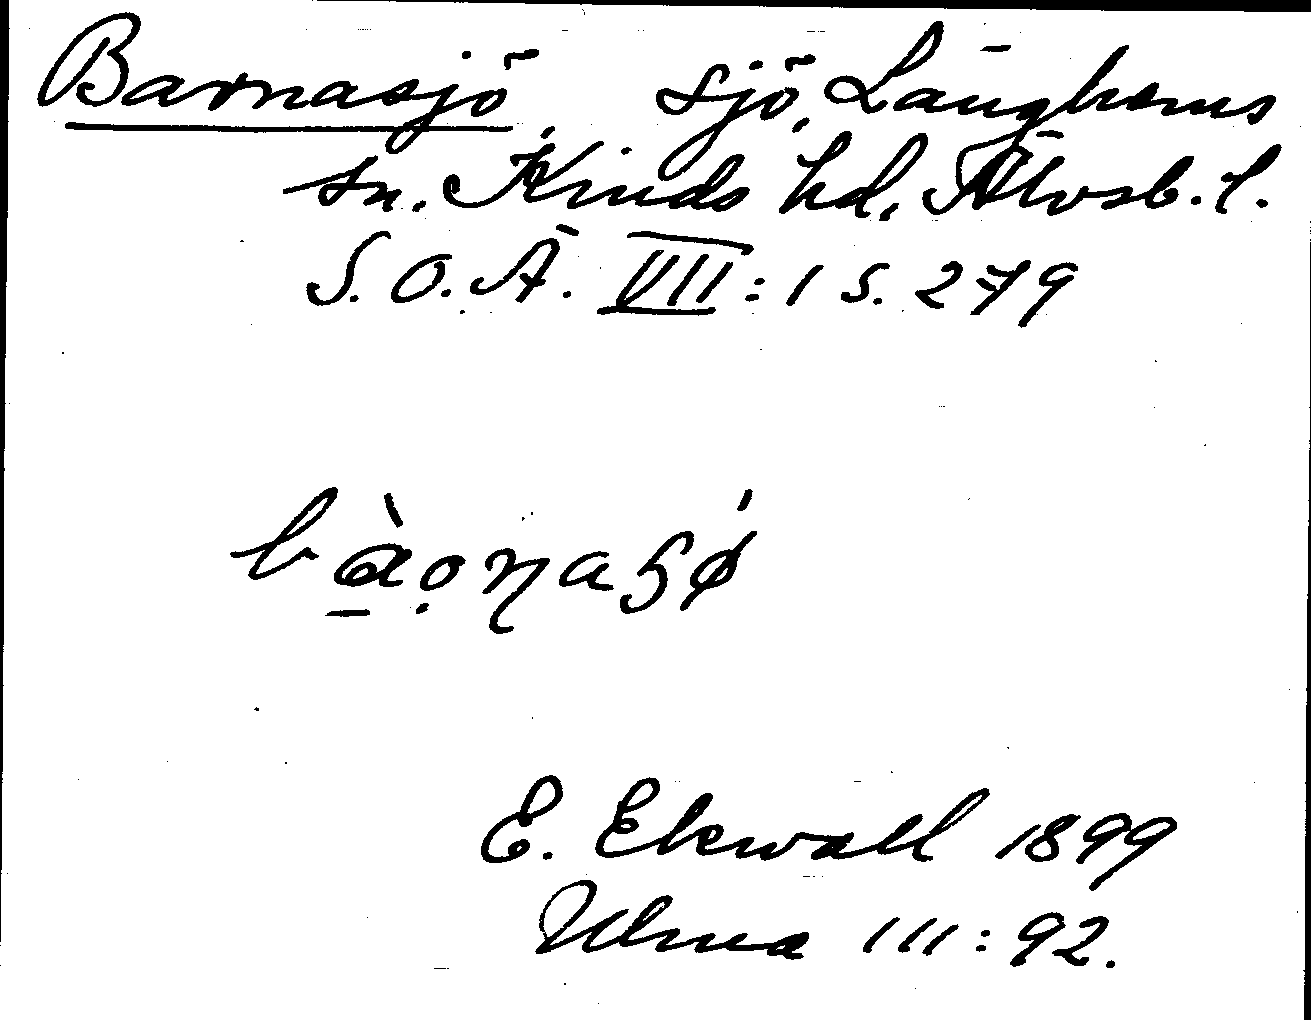 Barnasjö, sjö, Länghems
sn. Kinds hd, Älvsb. l.
S.O.Ä. VII:1 S. 279
E. Ekwall 1899
Ulma 111:92.